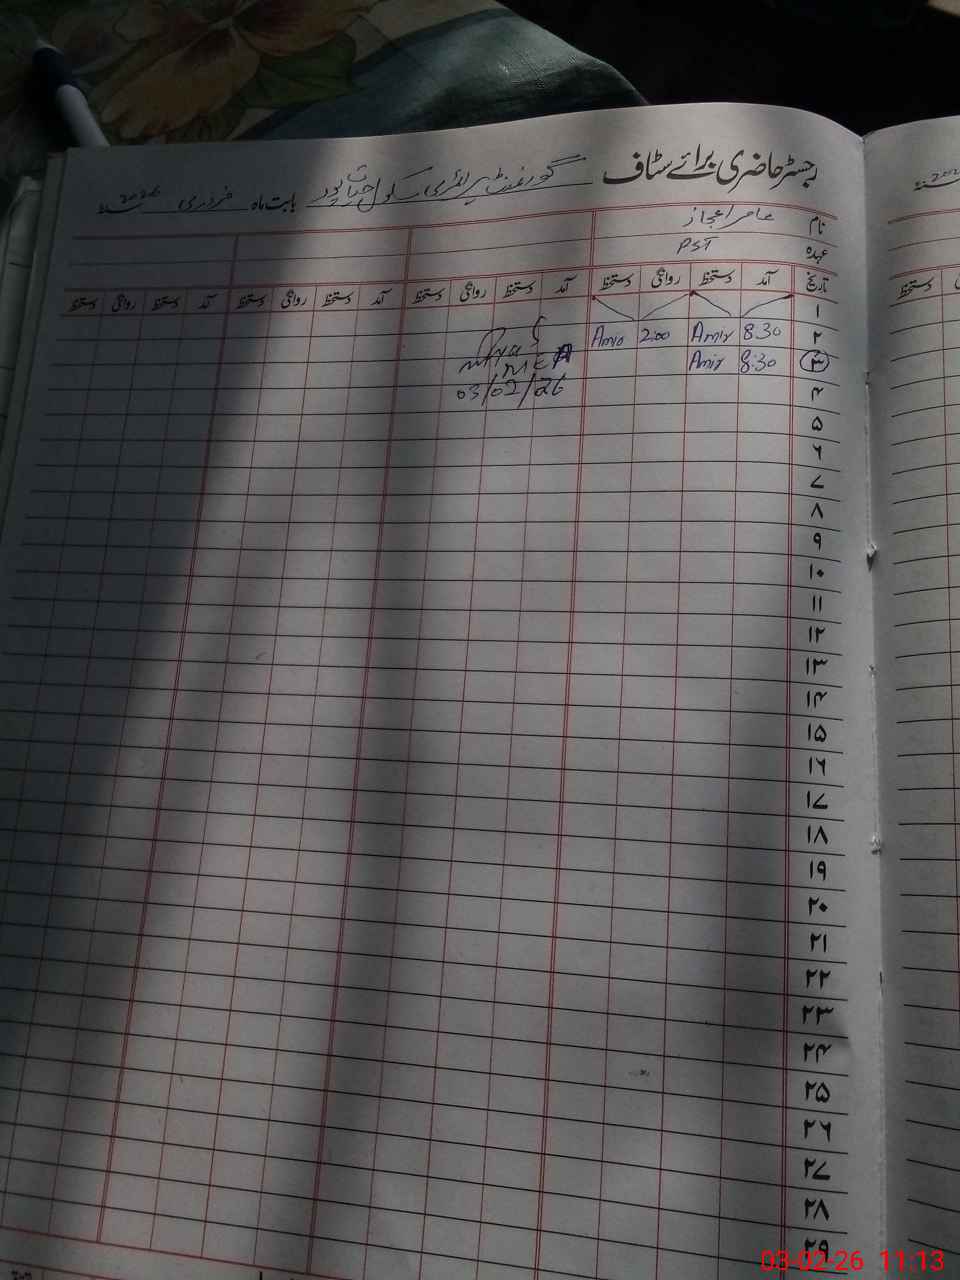 رجسٹر حاضری برائے سٹاف گورنمنٹ پرائمری سکول بابت ماہ فروری 2026
نام عامر اعجاز
عہدہ PST
تاریخ آمد دستخط روانگی دستخط آمد دستخط روانگی دستخط آمد دستخط روانگی دستخط آمد دستخط روانگی دستخط
۱
۲ 8:30 Amir 2:00 Amir
۳ 8:30 Amir
MEA
03/02/26
۴
۵
۶
۷
۸
۹
۱۰
۱۱
۱۲
۱۳
۱۴
۱۵
۱۶
۱۷
۱۸
۱۹
۲۰
۲۱
۲۲
۲۳
۲۴
۲۵
۲۶
۲۷
۲۸
۲۹
دستخط
03-02-26 11:13